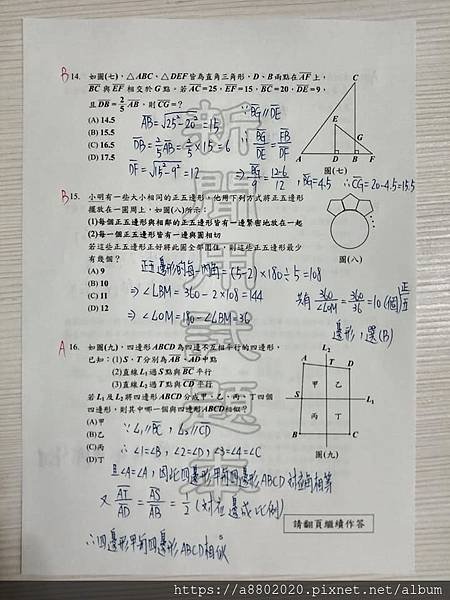 B 14. 如圖(七)，△ABC、△DEF皆為直角三角形，D、B兩點在AF上，
BC與EF相交於G點。若AC=25，EF=15，BC=20，DE=9，
且DB=2/5 AB，則CG=？
(A) 14.5
(B) 15.5
(C) 16.5
(D) 17.5
AB=√25²-20²=15
DB=2/5 AB=2/5×15=6
DF=√15²-9²=12
∵BG∥DE
∴BG/DE=FB/DF
⇒BG/9=12-6/12
∴BG=4.5 ∴CG=20-4.5=15.5
C
E
G
A D B F
圖(七)
B 15. 小明有一些大小相同的正五邊形，他用下列方式將正五邊形
擺放在一圓周上，如圖(八)所示：
(1)每個正五邊形與相鄰的正五邊形皆有一邊緊密地放在一起
(2)每個正五邊形皆有一邊與圓相切
若這些正五邊形正好將此圓全部圍住，則這些正五邊形最少
有幾個？
(A) 9
(B) 10
(C) 11
(D) 12
圖(八)
正五邊形的每一內角=(5-2)×180÷5=108
⇒∠LBM=360-2×108=144
⇒∠LOM=180-∠LBM=36
共有 360/∠LOM=360/36=10(個)正五
邊形，選(B)
A 16. 如圖(九)，四邊形ABCD為四邊不互相平行的四邊形，
已知：(1)S、T分別為AB、AD中點
(2)直線L₁過S點與BC平行
(3)直線L₂過T點與CD平行
若L₁及L₂將四邊形ABCD分成甲、乙、丙、丁四個
四邊形，則其中哪一個與四邊形ABCD相似？
(A)甲
(B)乙
(C)丙
(D)丁
L₂
A T D
甲 乙
S L₁
丙 丁
B C
圖(九)
∵L₁∥BC，L₂∥CD
∴∠1=∠B，∠2=∠D，∠3=∠4=∠C
且∠A=∠A，因此四邊形甲與四邊形ABCD對應角相等
又 AT/AD=AS/AB=1/2 (對應邊成比例)
∴四邊形甲與四邊形ABCD相似
請翻頁繼續作答
5
新聞用試題本
https://a8802020.pixnet.net/album